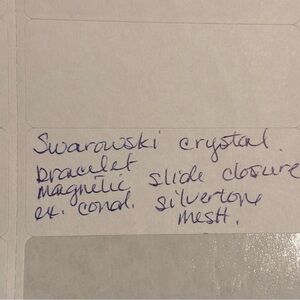 Swarowski crystal.
bracelet
magnetic slide closure
ex. cond. silvertone
mesh.